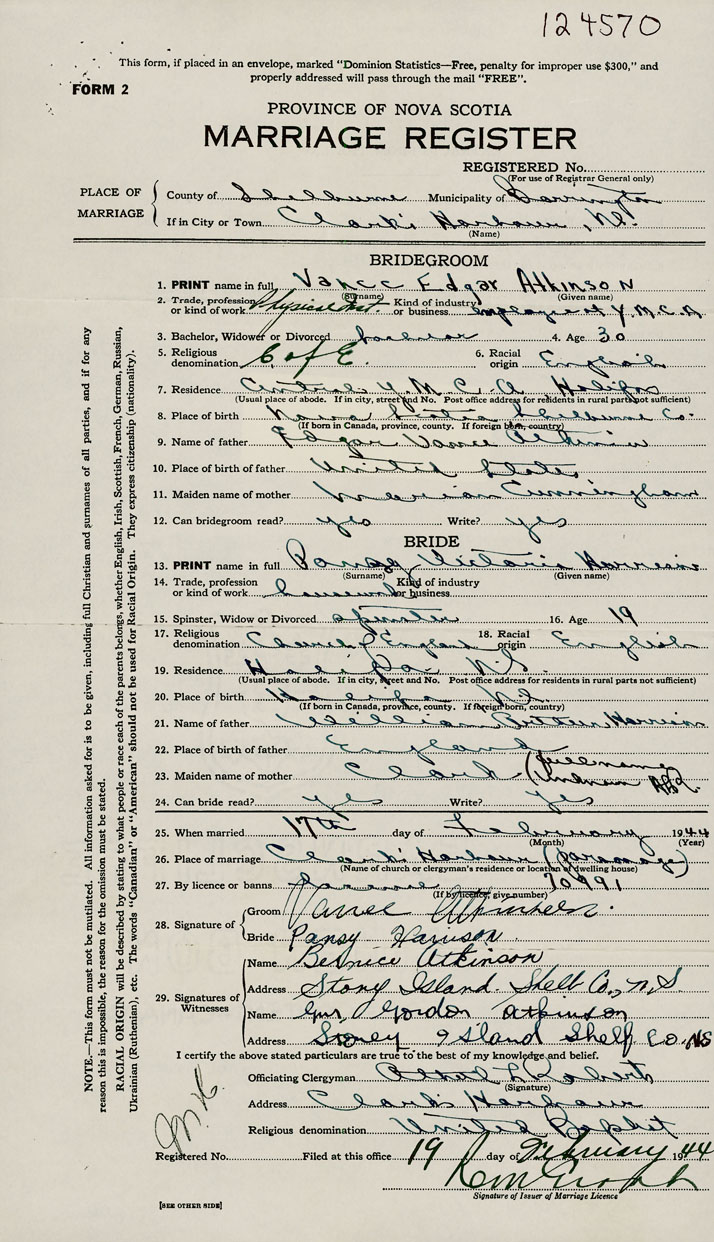 124570
This form, if placed in an envelope, marked "Dominion Statistics—Free, penalty for improper use $300," and
properly addressed will pass through the mail "FREE".
FORM 2
PROVINCE OF NOVA SCOTIA
MARRIAGE REGISTER
REGISTERED No.
(For use of Registrar General only)
PLACE OF MARRIAGE
County of Shelburne Municipality of Barrington
If in City or Town Clark's Harbour, N.S.
(Name)
BRIDEGROOM
1. PRINT name in full Vance Edgar Atkinson
(Surname) (Given name)
2. Trade, profession or kind of work Physical Inst. Kind of industry or business employed Y.M.C.A.
3. Bachelor, Widower or Divorced bachelor 4. Age 30
5. Religious denomination C of E. 6. Racial origin English
7. Residence Central Y.M.C.A. Halifax
(Usual place of abode. If in city, street and No. Post office address for residents in rural parts not sufficient)
8. Place of birth Nova Scotia Shelburne Co.
(If born in Canada, province, county. If foreign born, country)
9. Name of father Edgar Vance Atkinson
10. Place of birth of father United States
11. Maiden name of mother Cunningham
12. Can bridegroom read? yes Write? yes
BRIDE
13. PRINT name in full Pansy Victoria Harrison
(Surname) (Given name)
14. Trade, profession or kind of work housework Kind of industry or business
15. Spinster, Widow or Divorced spinster 16. Age 19
17. Religious denomination Church of England 18. Racial origin English
19. Residence Halifax N.S.
(Usual place of abode. If in city, street and No. Post office address for residents in rural parts not sufficient)
20. Place of birth Halifax N.S.
(If born in Canada, province, county. If foreign born, country)
21. Name of father William Harrison
22. Place of birth of father England
23. Maiden name of mother Clark (full name unknown
24. Can bride read? yes Write? yes
25. When married 17th day of February 1944
(Month) (Year)
26. Place of marriage Clark's Harbour (parsonage)
(Name of church or clergyman's residence or location of dwelling house)
27. By licence or banns license 70991
(If by licence, give number)
28. Signature of
Groom Vance Atkinson.
Bride Pansy Harrison.
29. Signatures of Witnesses
Name Bernice Atkinson
Address Stony Island Shelb Co., N.S
Name Gordon Atkinson
Address Stoney Island Shelb Co. NS
I certify the above stated particulars are true to the best of my knowledge and belief.
Officiating Clergyman L Roberts
(Signature)
Address Clark's Harbour
Religious denomination United Baptist
Registered No. Filed at this office 19 day of February 1944
Signature of Issuer of Marriage Licence
[SEE OTHER SIDE]
NOTE.—This form must not be mutilated. All information asked for is to be given, including full Christian and surnames of all parties, and if for any
reason this is impossible, the reason for the omission must be stated.
RACIAL ORIGIN will be described by stating to what people or race each of the parents belongs, whether English, Irish, Scottish, French, German, Russian,
Ukrainian (Ruthenian), etc. The words "Canadian" or "American" should not be used for Racial Origin. They express citizenship (nationality).